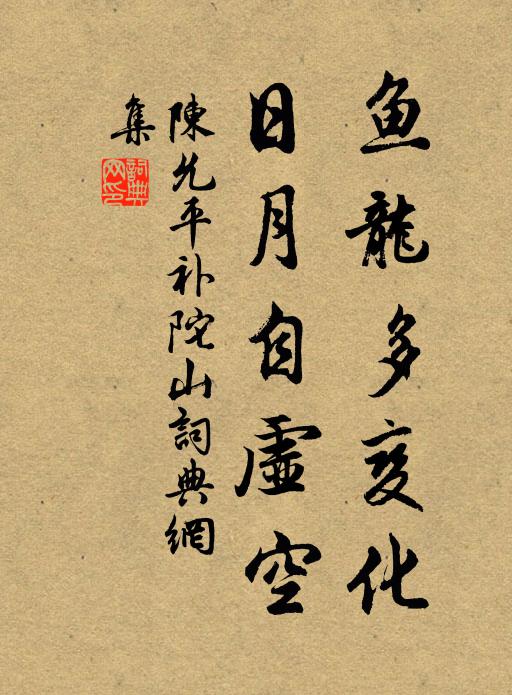 鱼龍多变化
日月自虛空
陳允平补陀山詞典網
集
詞典網印